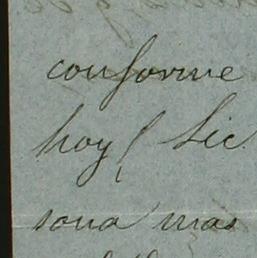 conforme
hoy( Sic
sona mas